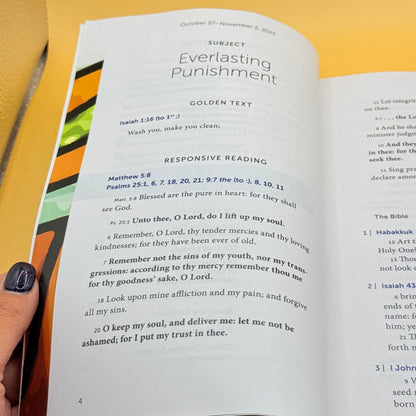 October 27–November 2, 2025
SUBJECT
Everlasting
Punishment
GOLDEN TEXT
Isaiah 1:16 (to 1st ;)
Wash you, make you clean;
RESPONSIVE READING
Matthew 5:8
Psalms 25:1, 6, 7, 18, 20, 21; 9:7 the (to :), 8, 10, 11
Matt. 5:8 Blessed are the pure in heart: for they shall
see God.
Ps. 25:1 Unto thee, O Lord, do I lift up my soul.
6 Remember, O Lord, thy tender mercies and thy loving
kindnesses; for they have been ever of old.
7 Remember not the sins of my youth, nor my trans-
gressions: according to thy mercy remember thou me
for thy goodness' sake, O Lord.
18 Look upon mine affliction and my pain; and forgive
all my sins.
20 O keep my soul, and deliver me: let me not be
ashamed; for I put my trust in thee.
4
21 Let integri
on thee.
9:7 . . . the L
8 And he sha
minister judgm
10 And they
in thee: for th
seek thee.
11 Sing prai
declare amon
The Bible
1 | Habakkuk
12 Art t
Holy One
13 Thou
not loo
2 | Isaiah 43
6 brin
ends of t
7
name: f
him; ye
21 Th
forth m
3 | I John
9 W
seed r
born